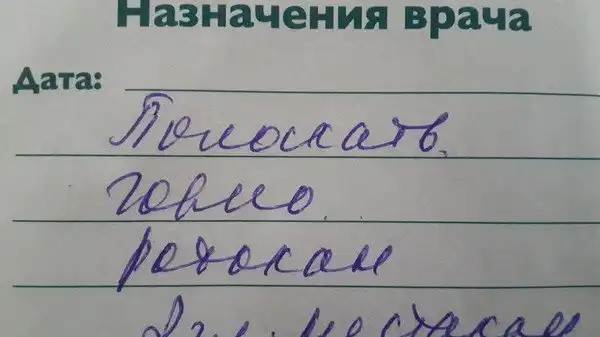 Назначения врача
Дата:
Полоскать
горло
ротокан
2 ч.л. на стакан